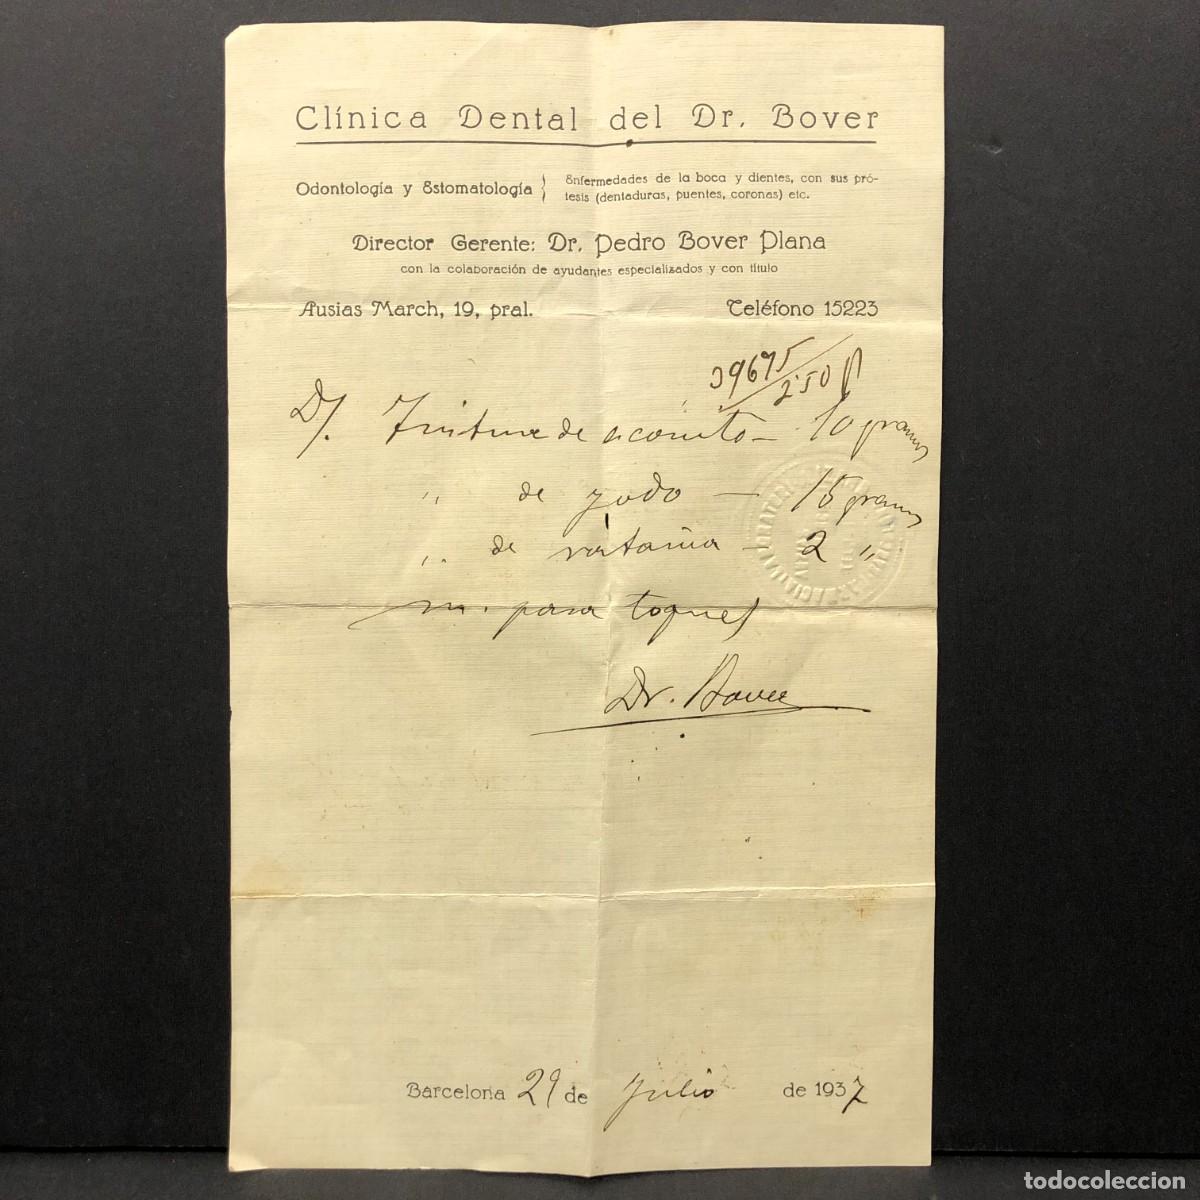 Clínica Dental del Dr. Bover
Odontología y Estomatología } Enfermedades de la boca y dientes, con sus pró-
tesis (dentaduras, puentes, coronas) etc.
Director Gerente: Dr. Pedro Bover Plana
con la colaboración de ayudantes especializados y con título
Ausias March, 19, pral. Teléfono 15223
39675
2'50
D/. Tintura de aconito - 10 gramos
" de yodo - 15 gramos
" de ratania - 2 "
m. para toques
Dr. Bover
Barcelona 29 de Julio de 1937
todocoleccion